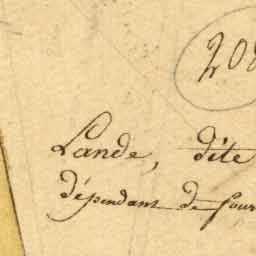 208
Lande, dite
dépendant de four